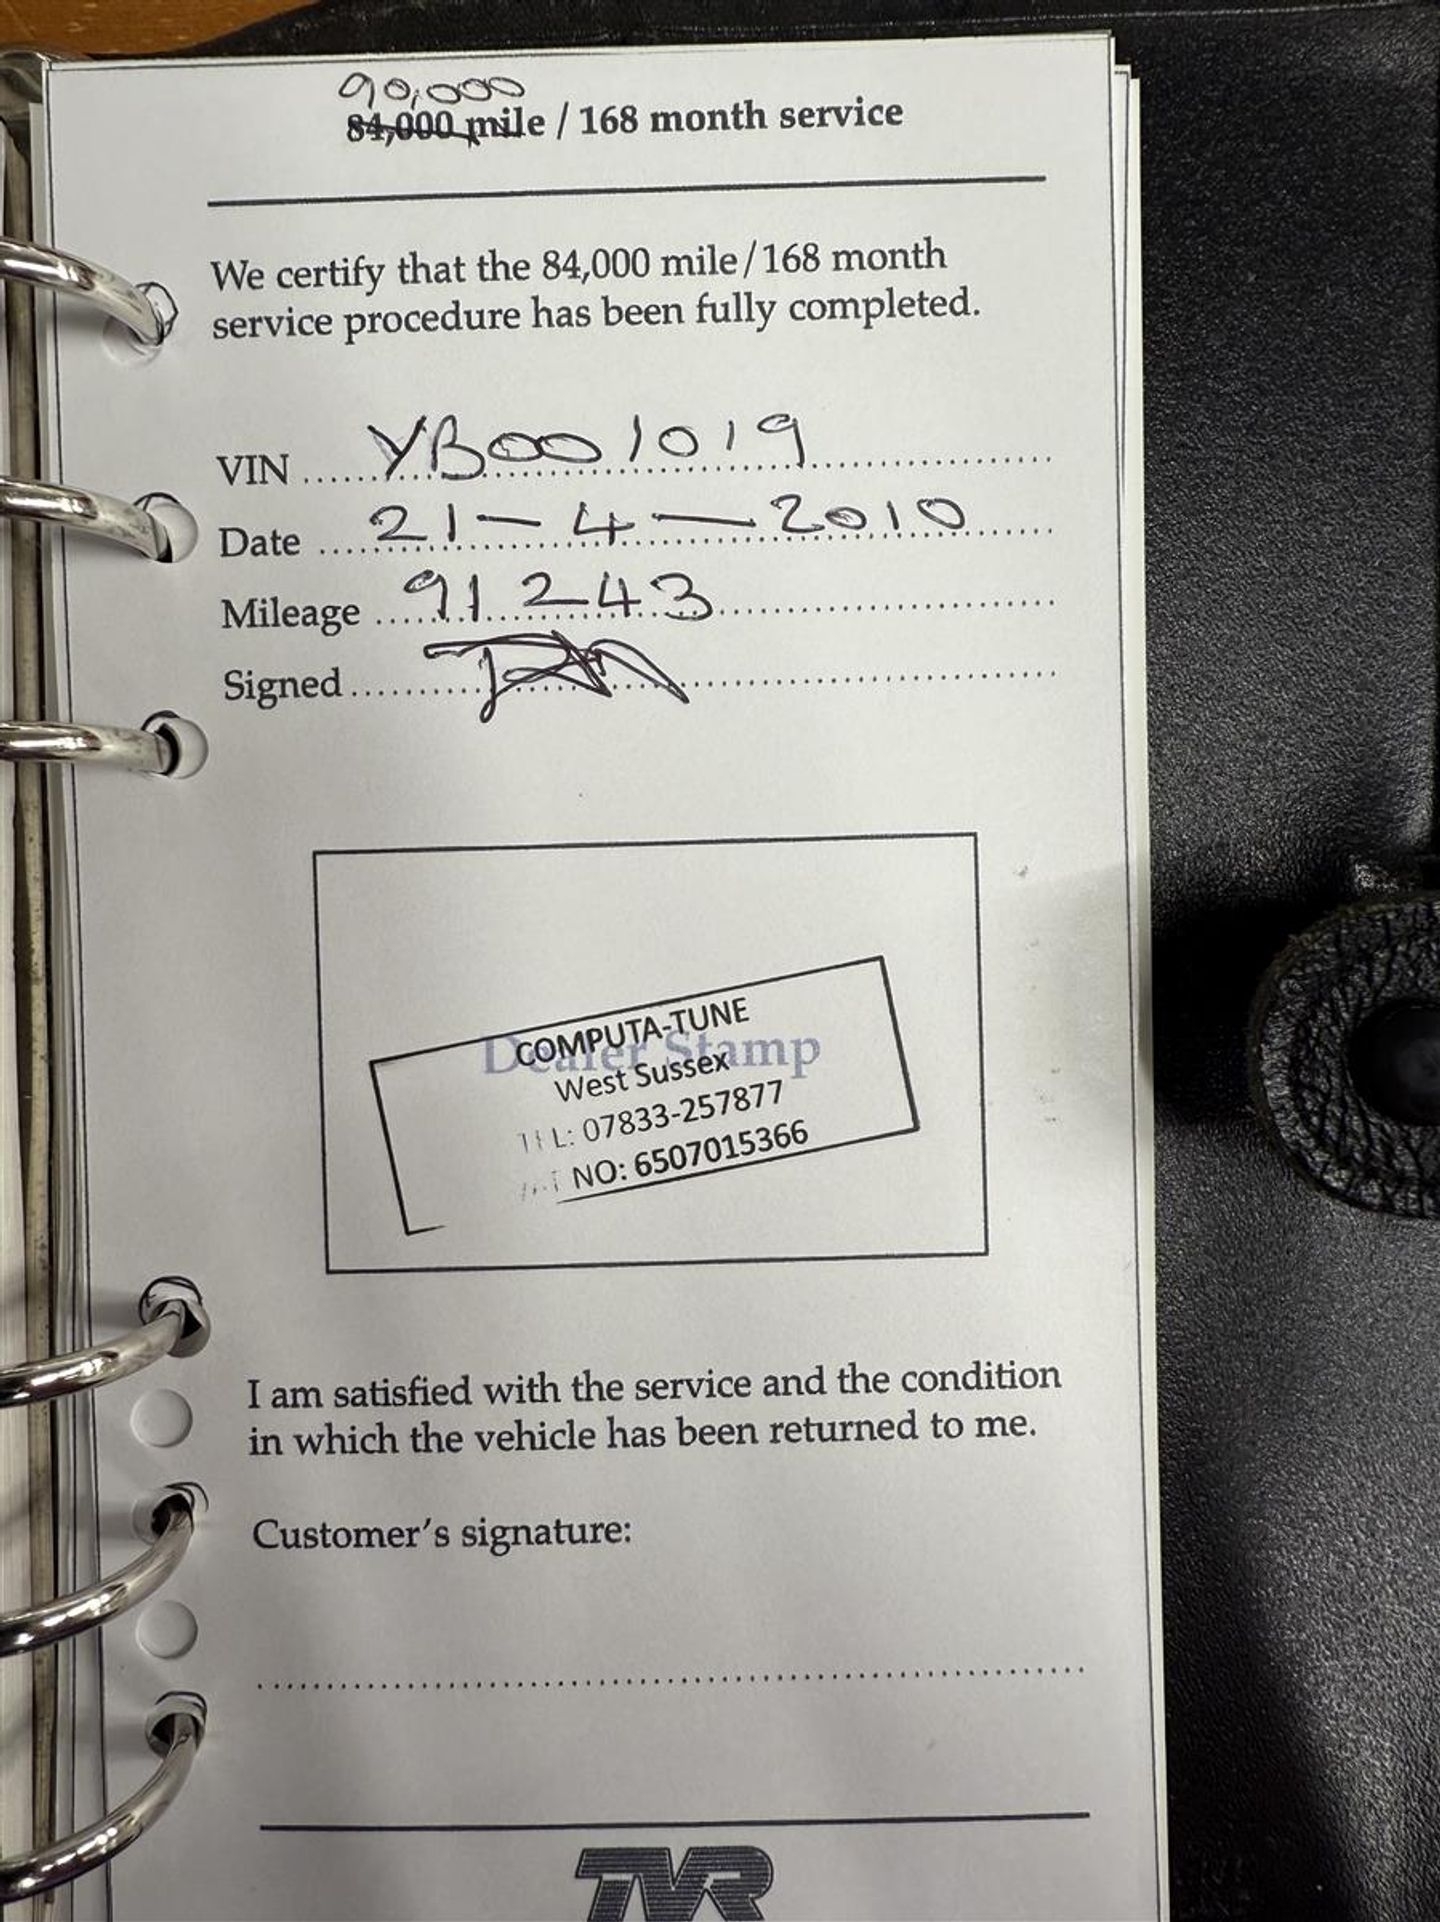 90,000
84,000 mile / 168 month service
We certify that the 84,000 mile/168 month
service procedure has been fully completed.
VIN YB001019
Date 21-4-2010
Mileage 91243
Signed
Dealer Stamp
COMPUTA-TUNE
West Sussex
TEL: 07833-257877
NO: 6507015366
I am satisfied with the service and the condition
in which the vehicle has been returned to me.
Customer's signature:
TVR